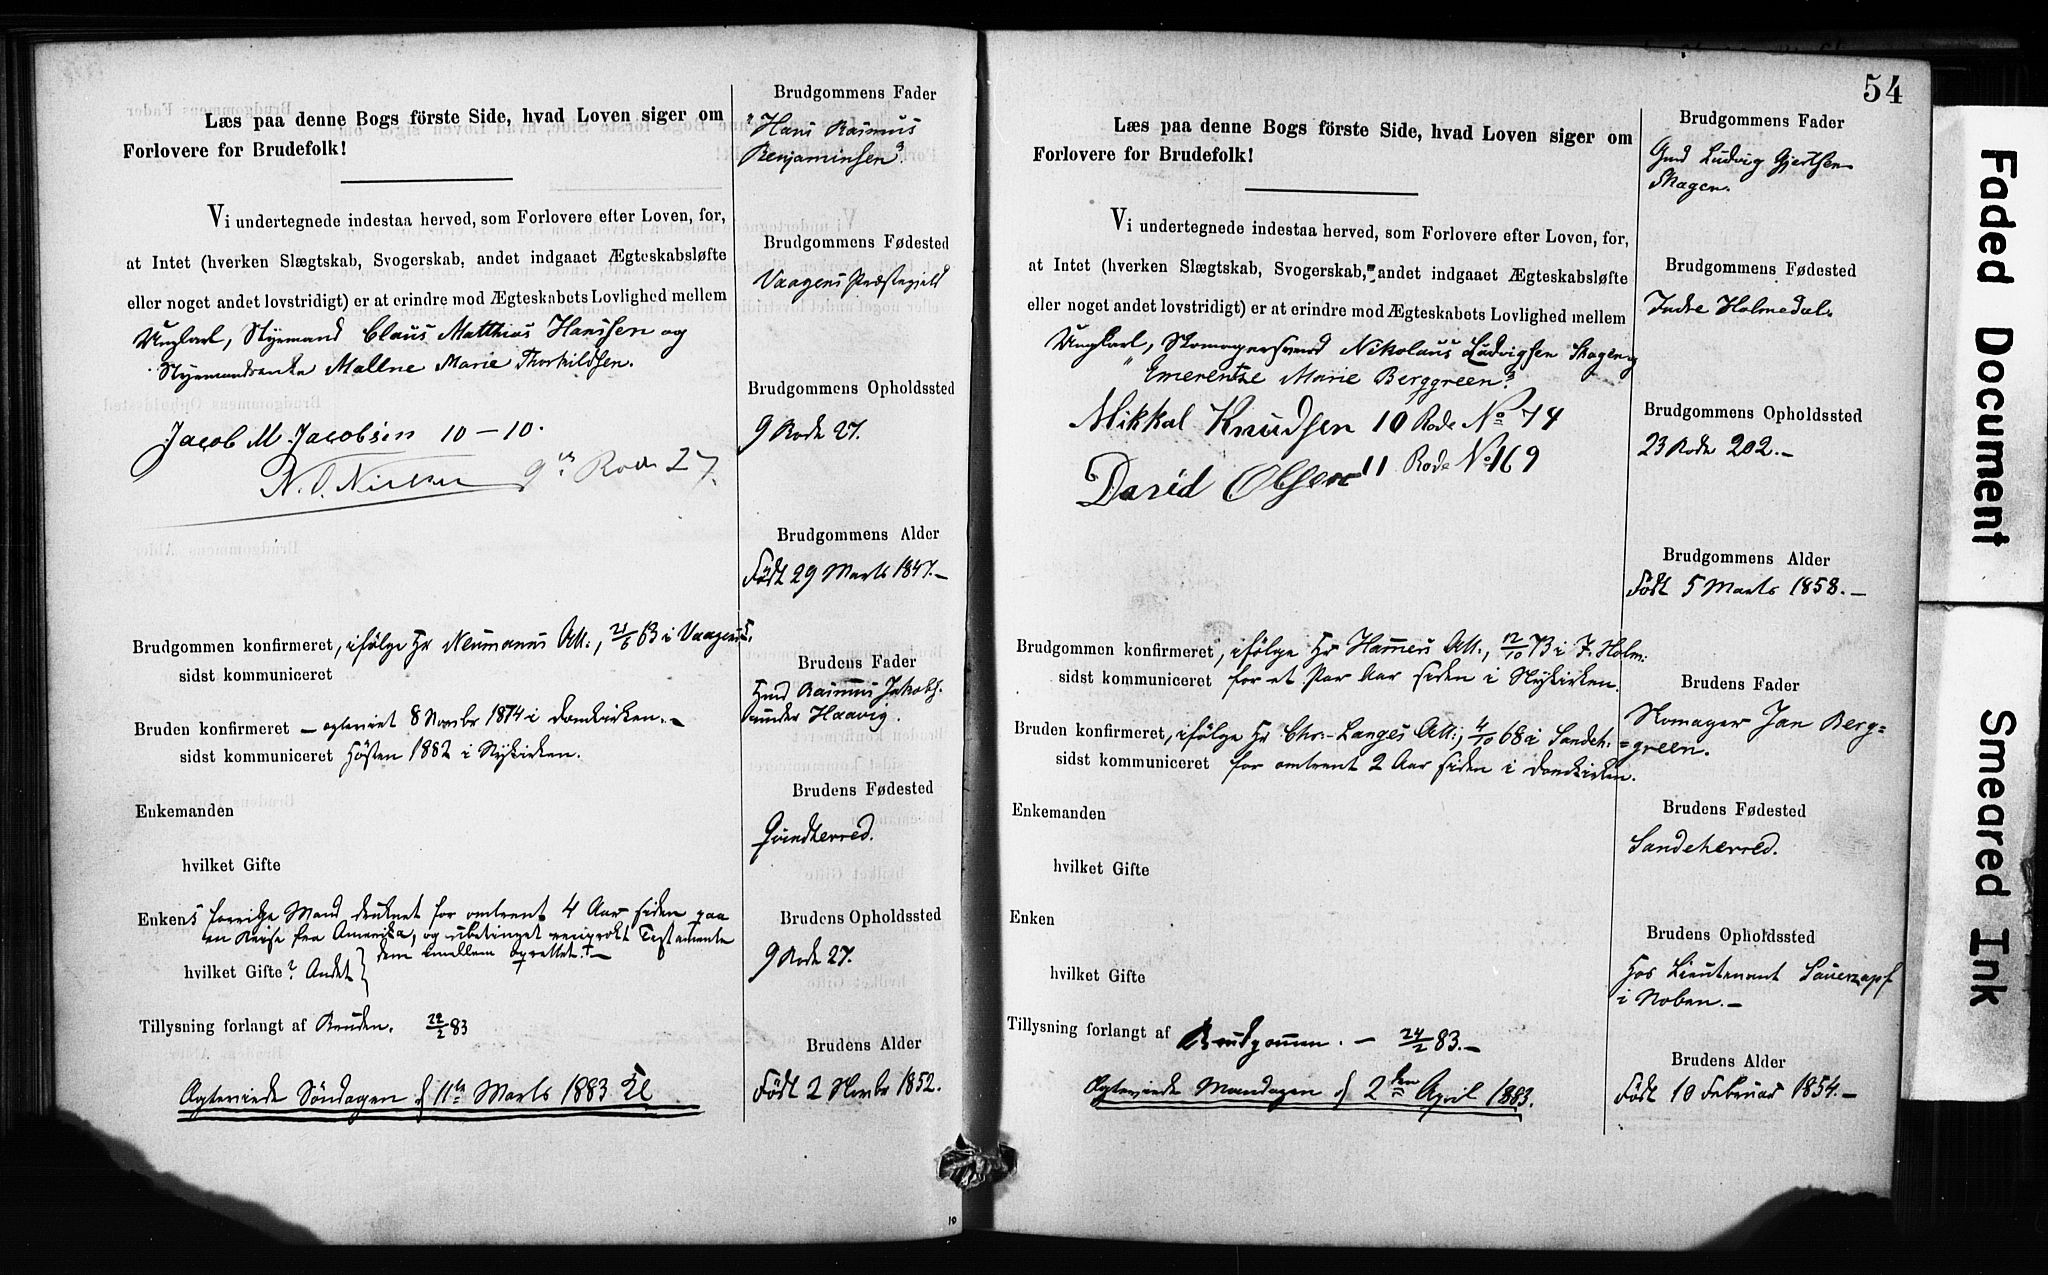 Læs paa denne Bogs förste Side, hvad Loven siger om
Forlovere for Brudefolk!
Vi undertegnede indestaa herved, som Forlovere efter Loven, for,
at Intet (hverken Slægtskab, Svogerskab, andet indgaaet Ægteskabsløfte
eller noget andet lovstridigt) er at erindre mod Ægteskabets Lovlighed mellem
Ungkarl, Styrmand Claus Matthias Hanssen og
Styrmandsenke Malene Marie Thorkildsen.
Jacob M Jacobsen 10-10.
N. O. Nielsen 9de Rode 27.
Brudgommen konfirmeret, ifölge Hr Neumanns Att:, 21/6 63 i Vaagens K.
sidst kommuniceret
Bruden konfirmeret – egteviet 8 Novbr 1874 i Domkirken. –
sidst kommuniceret Hösten 1882 i Nykirken.
Enkemanden
hvilket Gifte
Enkens forrige Mand druknet for omtrent 4 Aar siden paa
en Reise fra Amerika, og ubetinget reciprokt Testamente
dem imellem oprettet. –
hvilket Gifte? Andet
Tillysning forlangt af Bruden. 22/2 83
Ægteviede Söndagen d 11te Marts 1883 Kl
Brudgommens Fader
Hans Rasmus
Benjaminsen
Brudgommens Fødested
Vaagens Præstegjeld
Brudgommens Opholdssted
9 Rode 27.
Brudgommens Alder
Födt 29 Marts 1847. –
Brudens Fader
Gmd Rasmus Jakobs.
Sunder Haavig.
Brudens Fødested
Qvindherred.
Brudens Opholdssted
9 Rode 27.
Brudens Alder
Födt 2 Novbr 1852.
10
54
Læs paa denne Bogs förste Side, hvad Loven siger om
Forlovere for Brudefolk!
Vi undertegnede indestaa herved, som Forlovere efter Loven, for,
at Intet (hverken Slægtskab, Svogerskab, andet indgaaet Ægteskabsløfte
eller noget andet lovstridigt) er at erindre mod Ægteskabets Lovlighed mellem
Ungkarl, Skomagersvend Nikolaus Ludvigsen Skagen og
Emerentze Marie Berggreen.
Mikkal Knudsen 10 Rode No 74
David Olsen 11 Rode No 169
Brudgommen konfirmeret, ifölge Hr Hammers Att:, 12/10 73 i I. Holm:
sidst kommuniceret for et Par Aar siden i Nykirken.
Bruden konfirmeret, ifölge Hr Chr: Langes Att:, 4/10 68 i Sandeh:
sidst kommuniceret for omtrent 2 Aar siden i Domkirken.
Enkemanden
hvilket Gifte
Enken
hvilket Gifte
Tillysning forlangt af Brudgommen. – 24/2 83. –
Ægteviede Mandagen d 2den April 1883.
Brudgommens Fader
Gmd Ludvig Gjertsen
Skagen.
Brudgommens Fødested
Indre Holmedal.
Brudgommens Opholdssted
23 Rode 202. –
Brudgommens Alder
Födt 5 Marts 1858. –
Brudens Fader
Skomager Jan Berg=
=green.
Brudens Fødested
Sandeherred.
Brudens Opholdssted
Hos Lieutenant Sauerzapf
i Noben. –
Brudens Alder
Födt 10 Februar 1854. –
Faded Document
Smeared Ink